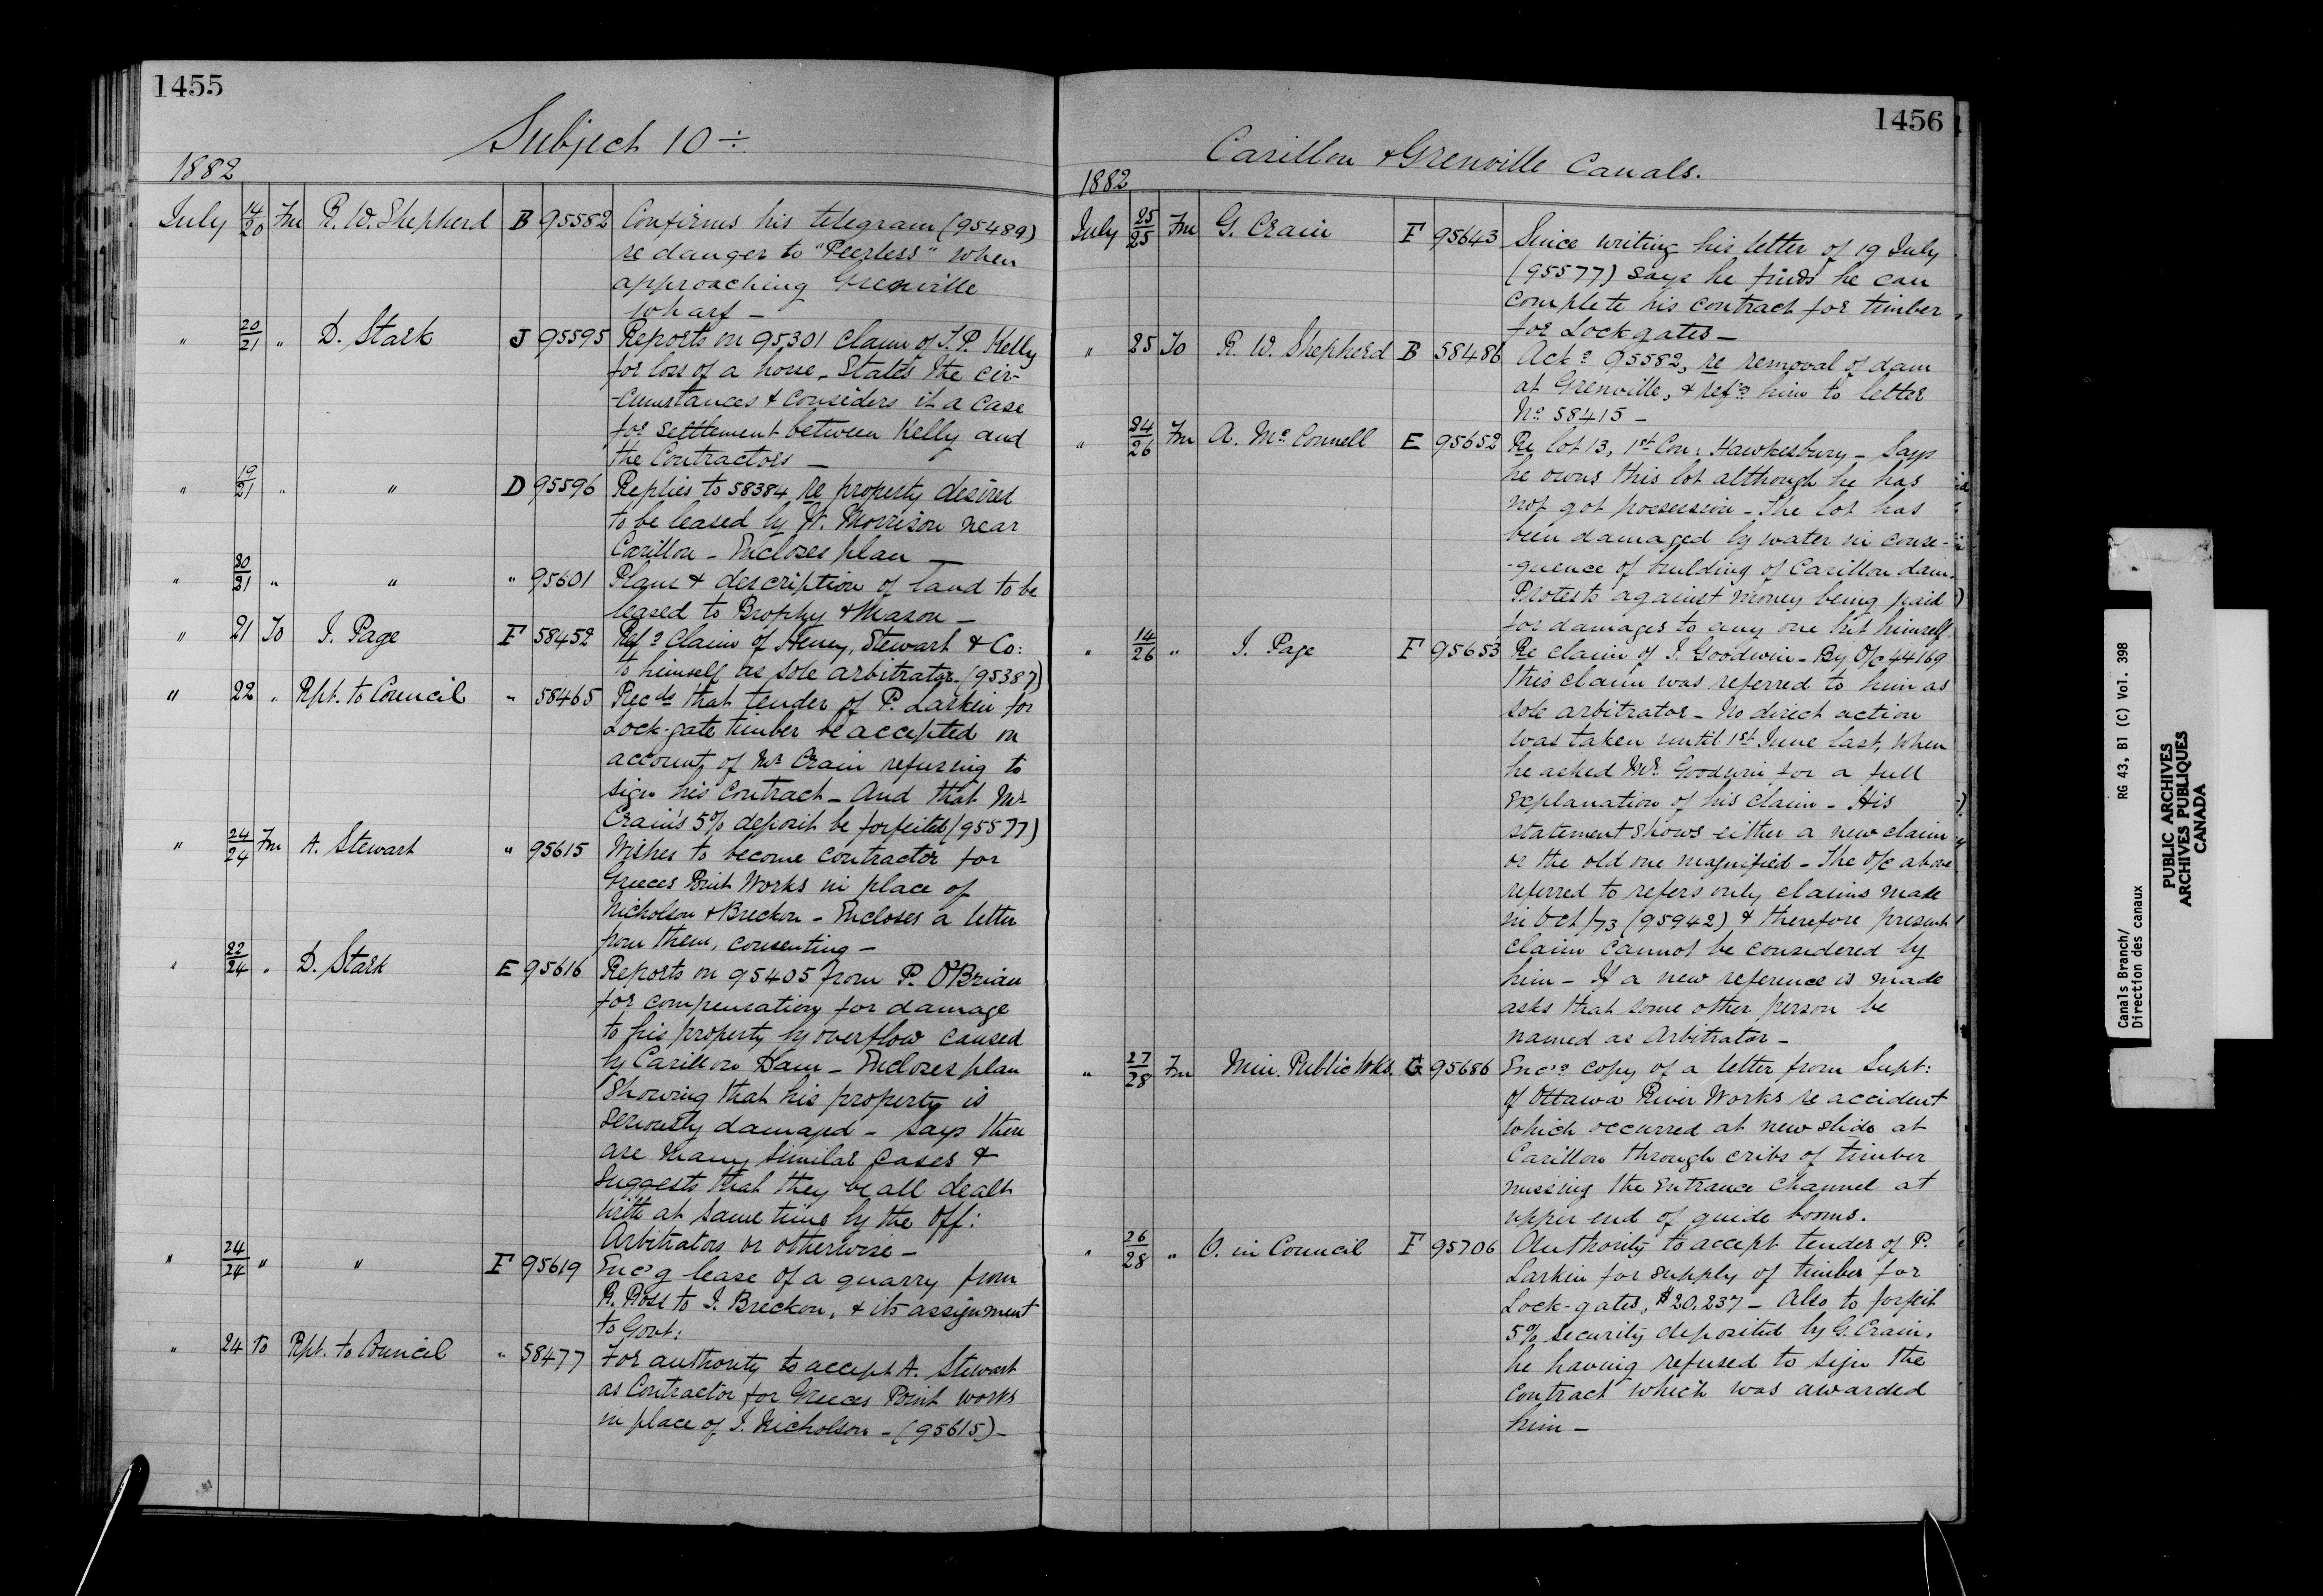 1455
Subject 10 ÷
1882
July 14/20 Fm R. W. Shepherd B 95582 Confirms his telegram (95489)
re danger to "Peerless" when
approaching Grenville
wharf –
" 20/21 " D. Stark J 95595 Reports on 95301 claim of J. P. Kelly
for loss of a horse. States the cir-
-cumstances & considers it a case
for settlement between Kelly and
the Contractors –
" 19/21 " " D 95596 Replies to 58384 re property desired
to be leased by W. Morrison near
Carillon – Encloses plan –
" 20/21 " " " 95601 Plans & description of land to be
leased to Brophy & Mason –
" 21 To J. Page F 58452 Ref.g claim of Heney, Stewart & Co:
to himself as sole arbitrator (95387)
" 22 " Rpt. to Council " 58465 Recds that tender of P. Larkin for
Lock-gate timber be accepted on
account of Mr Crain refusing to
sign his contract – And that Mr
Crain's 5% deposit be forfeited (95577)
" 24/24 Fm A. Stewart " 95615 Wishes to become contractor for
Greeces Point Works in place of
Nicholson & Breckon – Encloses a letter
from them, consenting –
" 22/24 " D. Stark E 95616 Reports on 95405 from P. O'Brian
for compensation for damage
to his property by overflow caused
by Carillon Dam – Encloses plan
showing that his property is
seriously damaged – Says there
are many similar cases &
suggests that they be all dealt
with at same time by the Off:
Arbitrators or otherwise –
" 24/24 " " F 95619 Enc'g lease of a quarry from
R. Ross to J. Breckon, & its assignment
to Govt:
" 24 to Rpt. to Council " 58477 For authority to accept A. Stewart
as Contractor for Greeces Point works
in place of J. Nicholson – (95615) –
1456
Carillon & Grenville Canals.
1882
July 25/25 Fm G. Crain F 95643 Since writing his letter of 19 July
(95577) says he finds he can
complete his contract for timber
for Lock gates –
" 25 To R. W. Shepherd B 58486 Ack.g 95582, re removal of dam
at Grenville, & ref.g him to letter
No 58415 –
" 24/26 Fm A. Mc Connell E 95652 Re lot 13, 1st Con: Hawkesbury – Says
he owns this lot although he has
not got possession – The lot has
been damaged by water in conse-
-quence of building of Carillon dam.
Protests against money being paid
for damages to any one but himself.
" 14/26 " J. Page F 95653 Re claim of J. Goodwin – By O/C 44169
this claim was referred to him as
sole arbitrator – No direct action
was taken until 1st June last, when
he asked Mr. Goodwin for a full
explanation of his claim – His
statement shows either a new claim
or the old one magnified – The O/C above
referred to refers only claims made
in Oct/73 (95942) & therefore present
claim cannot be considered by
him – If a new reference is made
asks that some other person be
named as Arbitrator –
" 27/28 Fm Min. Public Wks. G 95686 Enc.g copy of a letter from Supt:
of Ottawa River Works re accident
which occurred at new slide at
Carillon through cribs of timber
missing the entrance channel at
upper end of guide booms.
" 26/28 " O. in Council F 95706 Authority to accept tender of P.
Larkin for supply of timber for
Lock-gates, $20,237 – Also to forfeit
5% security deposited by G. Crain,
he having refused to sign the
contract which was awarded
him –
Canals Branch/ RG 43, B1 (C) Vol. 398
Direction des canaux
PUBLIC ARCHIVES
ARCHIVES PUBLIQUES
CANADA